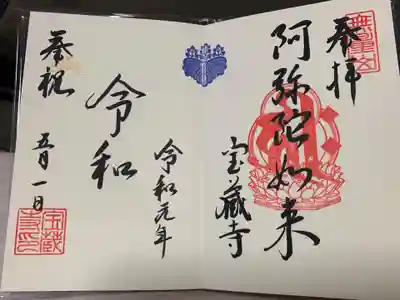 奉拝
阿弥陀如来
宝蔵寺
令和元年
令和
奉祝
五月一日
宝蔵寺印